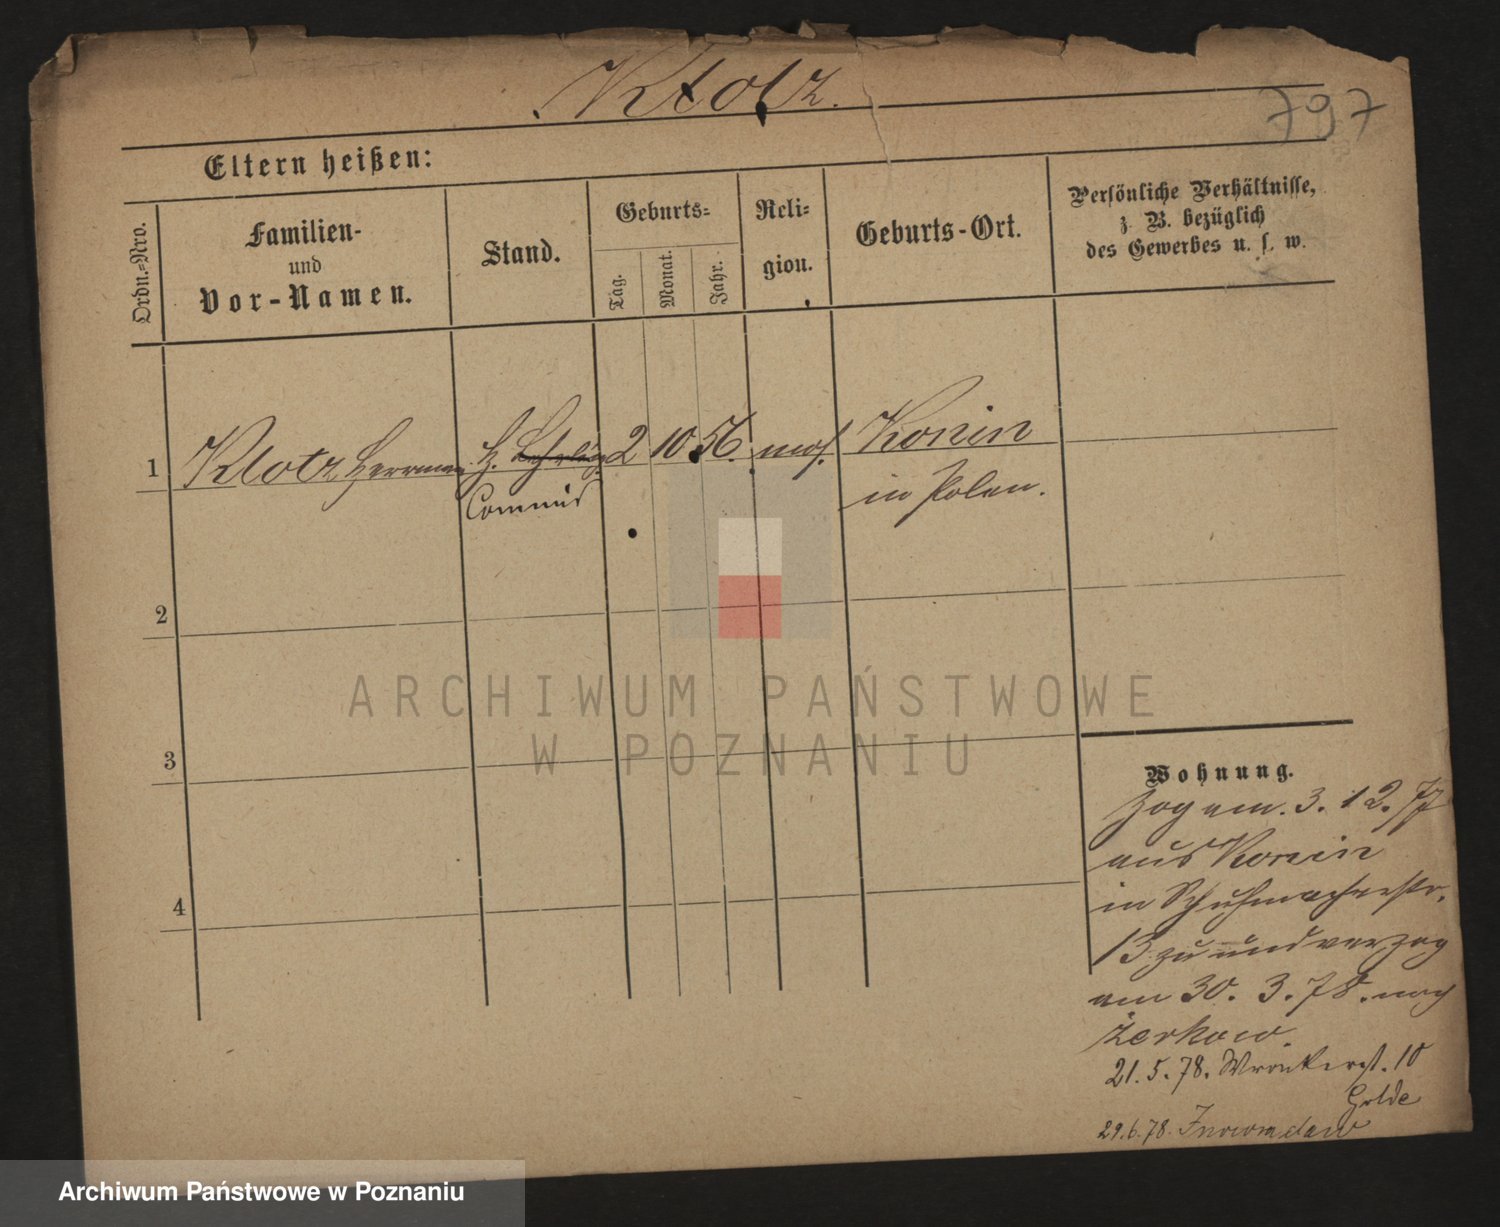 Klotz.
797
Eltern heißen:
Ordn.=Nro.
Familien-
und
Vor-Namen.
Stand.
Geburts=
Tag.
Monat.
Jahr.
Reli=
gion.
Geburts-Ort.
Persönliche Verhältnisse,
z. B. bezüglich
des Gewerbes u. s. w.
1 Klotz Herrman H. Lehrling 2 10 56. mos. Konin
Commis
in Polen.
2
3
4
Wohnung.
Zog am. 3. 12. 77
aus Konin
in Schuhmacherstr.
13 zu und verzog
am 30. 3. 78. nach
Zerkow.
21. 5. 78. Wronkerst. 10
Golde
29. 6. 78. Inowraclaw
ARCHIWUM PAŃSTWOWE
W POZNANIU
Archiwum Państwowe w Poznaniu